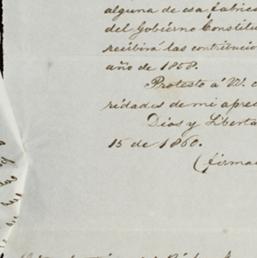 alguna de esa fabric
del Gobierno Constitu
recibirá las contribucio
año de 1858.
Protesto á V.
ridades de mi apre
Dios y Liberta
15 de 1860.
(firma